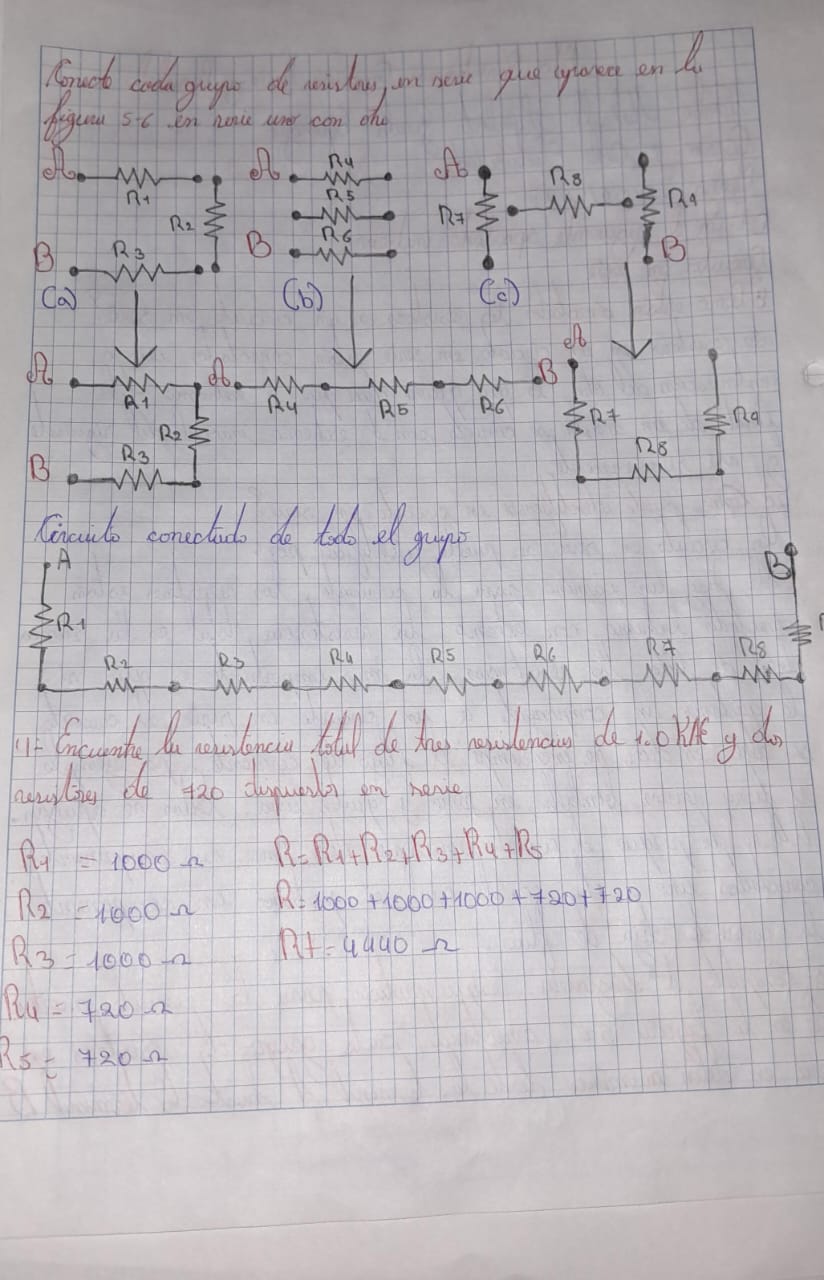 Conecto cada grupo de resistores, en serie que aparece en la
figura 5-6 en serie uno con otro
A R1 R2 B R3 (a)
A R4 R5 B R6 (b)
A R7 R8 R9 B (c)
A R1 R2 B R3
A R4 R5 R6 B
A R7 R8 R9
Circuito conectado de todo el grupo
A B
R1 R2 R3 R4 R5 R6 R7 R8
Encuentre la resistencia total de tres resistencias de 1.0 y dos
resistores de 720 dispuestos en serie
R1 = 1000 Ω R=R1+R2+R3+R4+R5
R2 = 1000 Ω R=1000+1000+1000+720+720
R3 = 1000 Ω Rt=4440 Ω
R4 = 720 Ω
R5 = 720 Ω